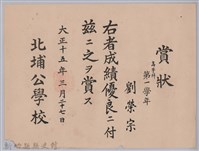 賞狀
第一學年
劉榮宗
右者成績優良ニ付
茲ニ之ヲ賞ス
大正十五年三月二十七日
北埔公學校